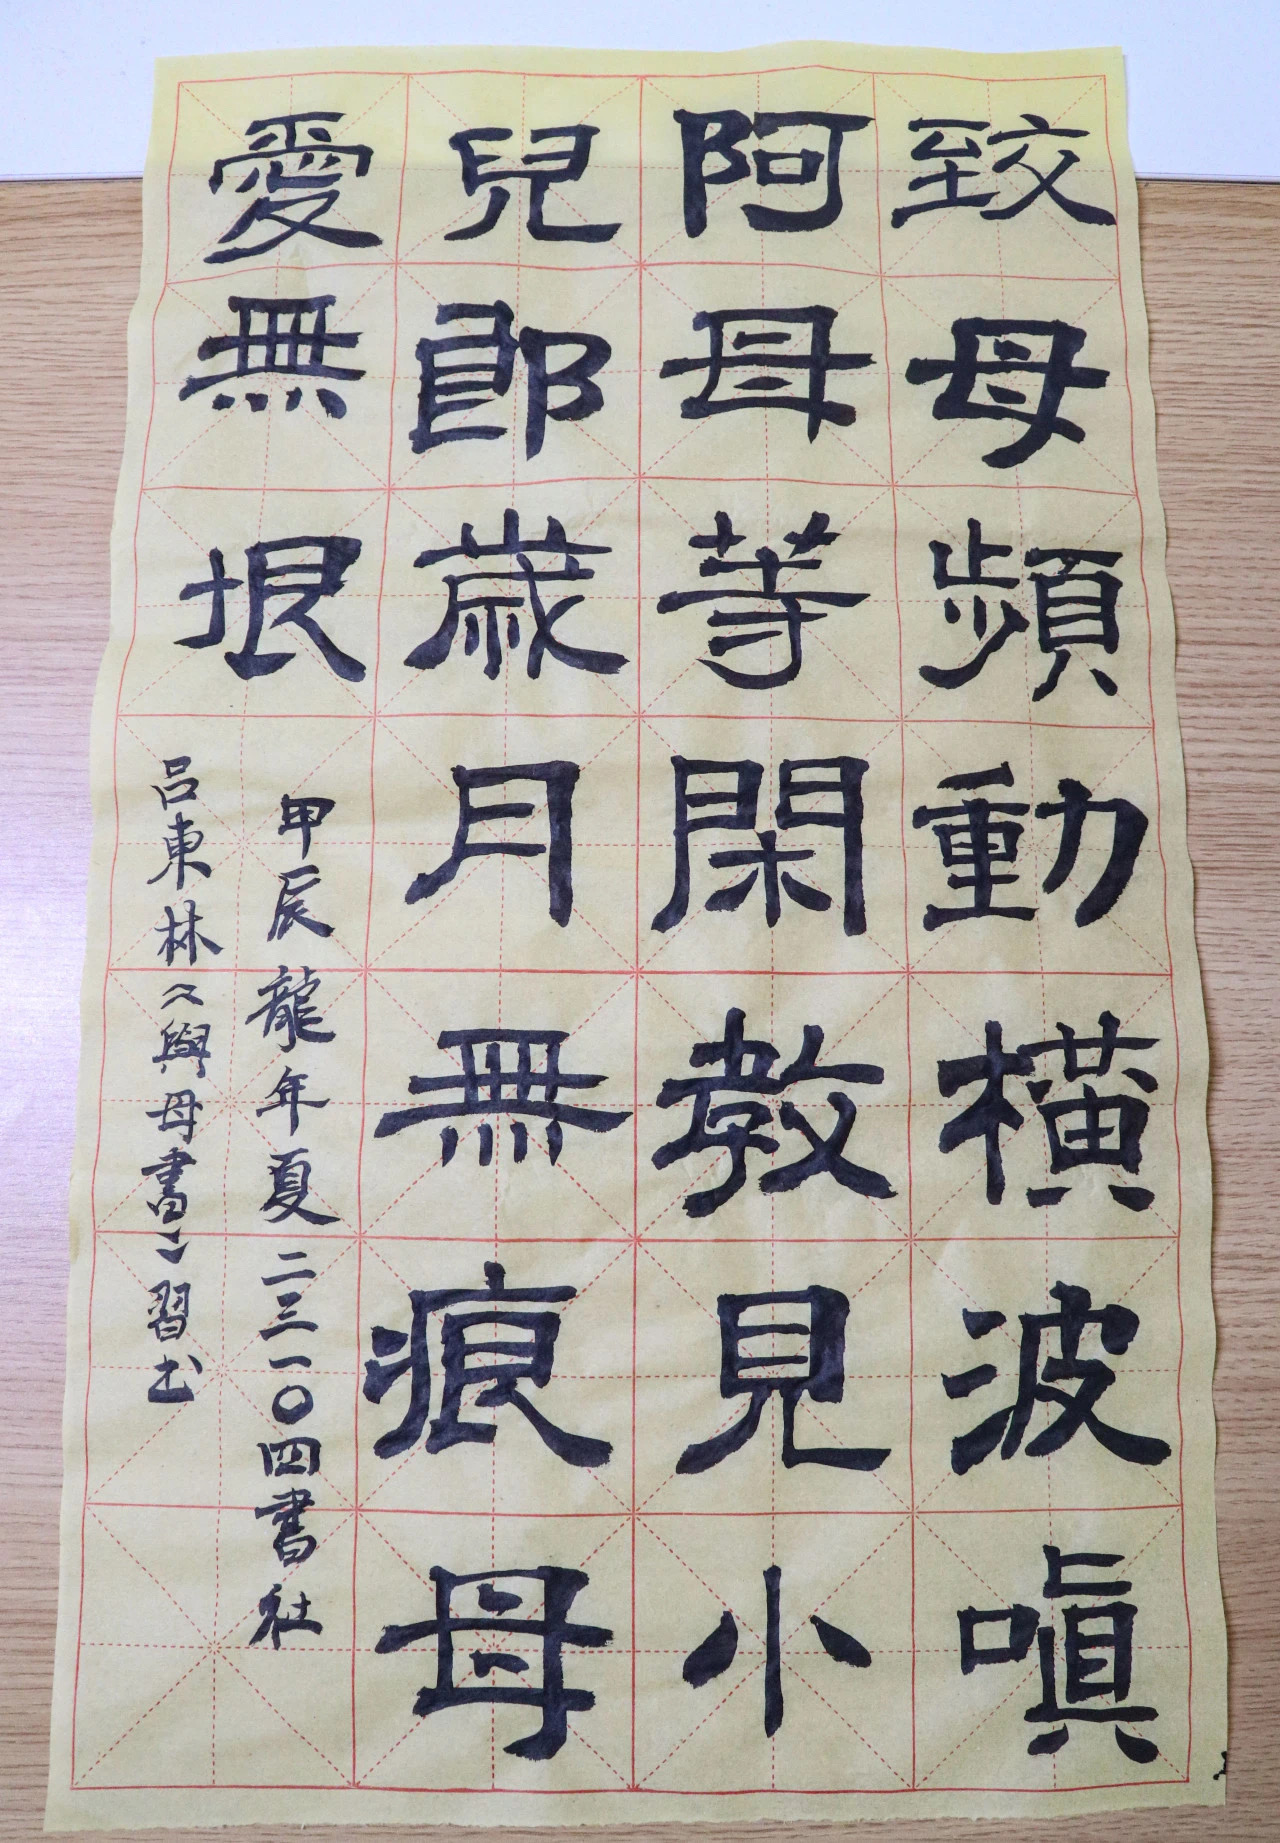 致母頻動橫波嗔
阿母等閑教見小
兒郎歲月無痕母
愛無垠
甲辰龍年夏二三一〇四書社
呂東林與母書習